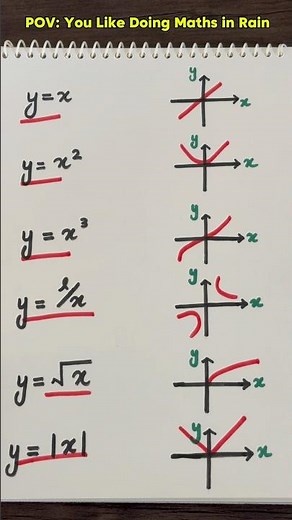 POV: You Like Doing Maths in Rain
y = x
y
x
y = x²
y
x
y = x³
y
x
y = 1/x
y
x
y = √x
y
x
y = |x|
y
x